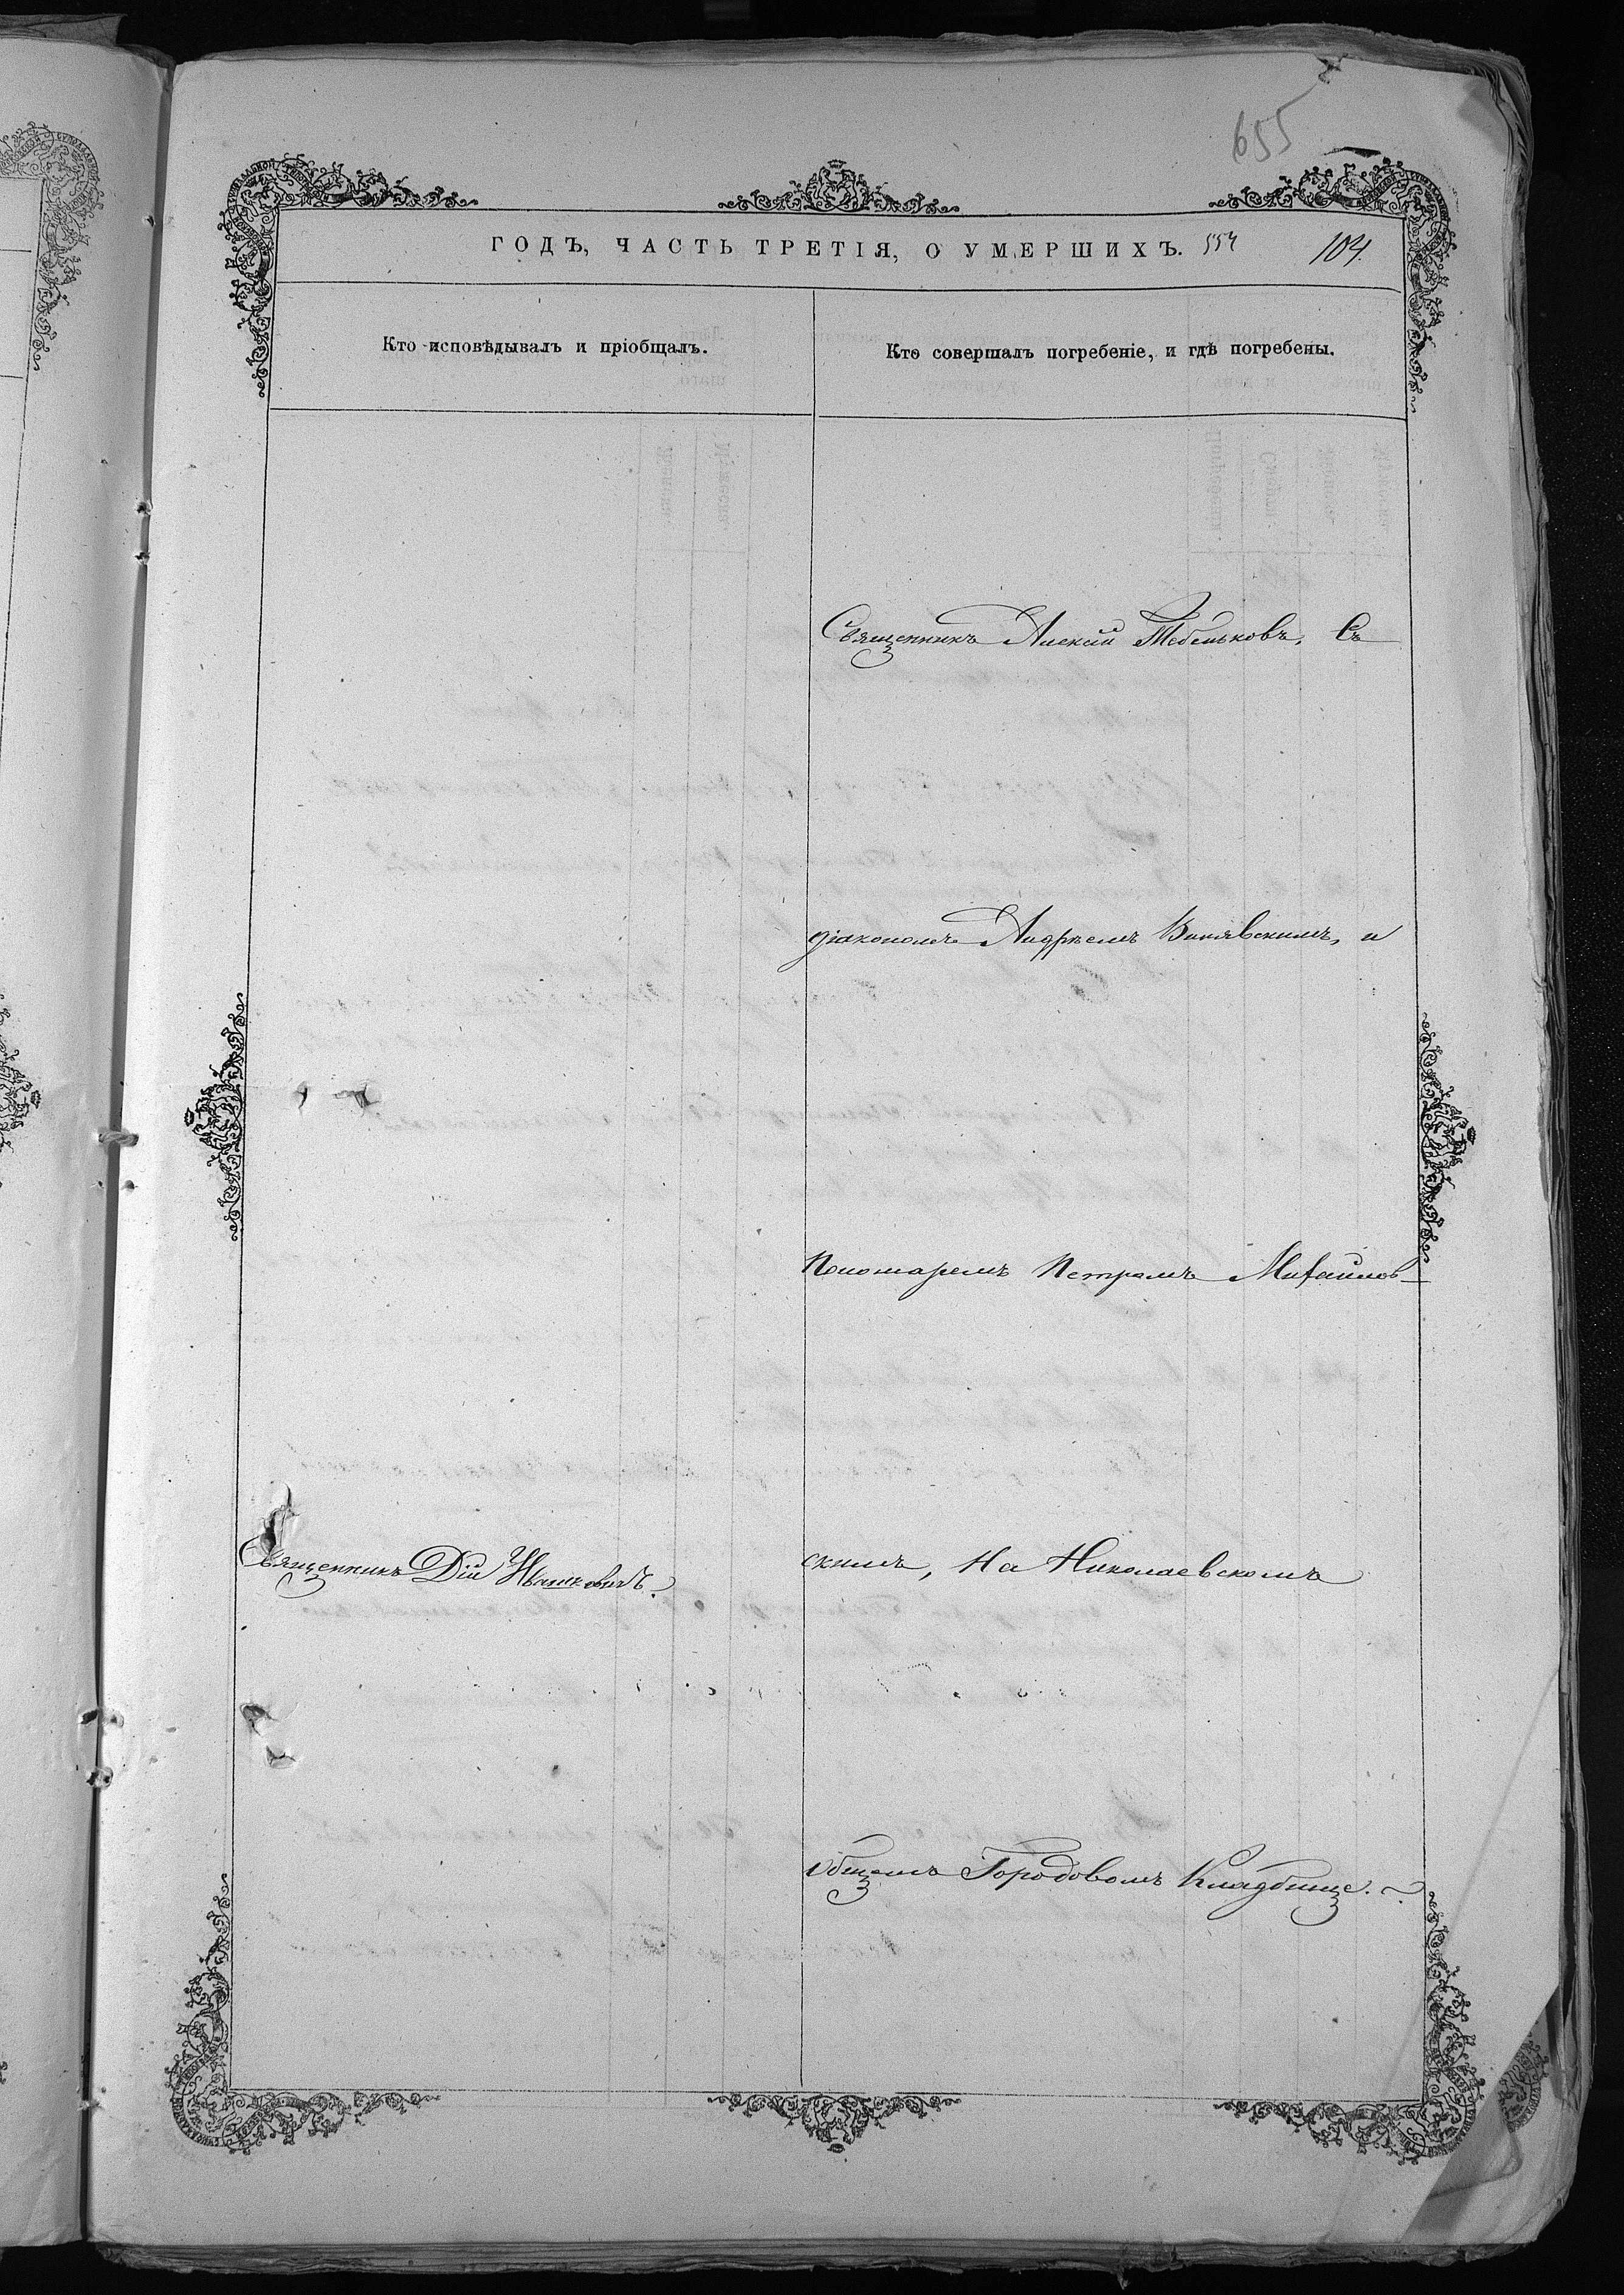 655
ГОДЪ, ЧАСТЬ ТРЕТІЯ, О УМЕРШИХЪ. 554 104.
Кто исповѣдывалъ и пріобщалъ.
Кто совершалъ погребеніе, и гдѣ погребены.
Священникъ Алексій Тебеньковъ, Съ
діакономъ Андреемъ и
Пономаремъ Петромъ Михайлов-
Священникъ Дій Ивашкевичъ.
скимъ, На Николаевскомъ
общемъ Городовомъ Кладбище.